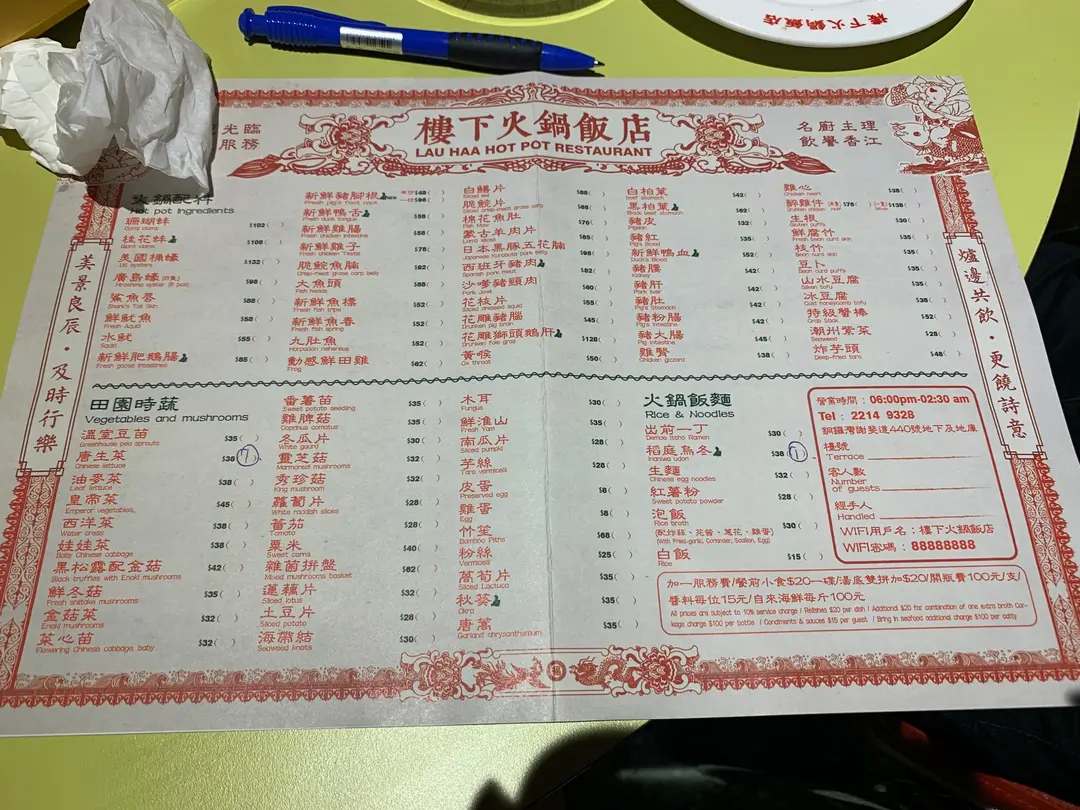 樓下火鍋飯店
光臨
服務
樓下火鍋飯店
LAU HAA HOT POT RESTAURANT
名廚主理
飲譽香江
美景良辰・及時行樂
爐邊共飲・更饒詩意
火鍋配料
Hot pot Ingredients
珊瑚蚌 $102( )
桂花蚌
美國桶蠔 $132( )
US oysters
廣島蠔
Hiroshima oyster
鯊魚唇 $88( )
鮮魷魚 $58( )
水魷 $55( )
Squid
新鮮肥鵝腸 $85( )
Fresh goose intestines
新鮮豬腳椒
新鮮鴨舌
新鮮雞腸
新鮮雞子
Fresh chicken Testis
脆鯇魚腩
大魚頭
Fish heads
新鮮魚標
Fresh fish tripe
新鮮魚春 $52( )
九肚魚 $52( )
動感鮮田雞 $62( )
Frog
白鱔片
脆鯇片
棉花魚肚 $70
蒙古羊肉片
日本黑豚五花腩
Japanese Kurobuta pork belly
西班牙豬肉
Spanish pork meat
沙嗲豬頸肉
花枝片
花雕豬腦 $45( )
Drunken pig brain
花雕獅頭鵝肝 $128( )
Drunken foie gras
黃喉 $50( )
Ox throat
白柏葉 $42( )
黑柏葉 $62( )
豬皮 $32( )
Pigskin
豬紅 $35( )
Pig's Blood
新鮮鴨血 $52( )
Duck's Blood
豬腰
Kidney
豬肝 $42( )
Pork liver
豬肚
Pig's Stomach
豬粉腸
Pig's intestine
豬大腸
Pig intestine
雞腎 $38( )
Chicken gizzard
雞心 $38( )
Chicken heart
醉雞件
生根 $30( )
Gluten puffs
鮮腐竹 $35( )
Fresh bean curd skin
枝竹 $35( )
Bean curd skin
豆卜
Bean curd puffs
山水豆腐 $35( )
Silken tofu
冰豆腐 $38( )
特級蟹棒 $52( )
Crab Stick
潮州紫菜 $28( )
Seaweed
炸芋頭 $48( )
Deep-fried taro
田園時蔬
Vegetables and mushrooms
溫室豆苗 $35( )
Greenhouse pea sprouts
唐生菜 $38 (1)
Chinese lettuce
油麥菜 $38( )
Leaf lettuce
皇帝菜 $45( )
Emperor vegetables,
西洋菜 $38( )
Water cress
娃娃菜 $38( )
Baby Chinese cabbage
黑松露配金菇 $42( )
Black truffles with Enoki mushrooms
鮮冬菇 $35( )
Fresh shiitake mushrooms
金菇菜 $32( )
Enoki mushrooms
菜心苗 $32( )
Flowering Chinese cabbage, baby
番薯苗 $35( )
Sweet potato seedling
雞脾菇 $35( )
Coprinus comatus
冬瓜片 $30( )
White gourd
靈芝菇 $32( )
Marmoreal mushrooms
秀珍菇 $32( )
King mushroom
蘿蔔片 $28( )
White raddish slices
番茄 $28( )
Tomato
粟米 $40( )
Sweet corns
雜菌拼盤 $62( )
Mixed mushrooms basket
蓮藕片 $32( )
Sliced lotus
土豆片 $28( )
Sliced potato
海帶結 $30( )
Seaweed knots
木耳 $30( )
Fungus
鮮淮山 $35( )
Fresh Yam
南瓜片 $28( )
Sliced pumpkin
芋絲 $28( )
Taro vermicelli
皮蛋 $8( )
Preserved egg
雞蛋 $8( )
Egg
竹笙 $68( )
Bamboo Piths
粉絲 $25( )
Vermicelli
萵筍片 $35( )
Sliced Lactuca
秋葵 $35( )
Okra
唐蒿 $35( )
Garland chrysanthemum
火鍋飯麵
Rice & Noodles
出前一丁 $30( )
Demae Itcho Ramen
稻庭烏冬 $38 (1)
Inaniwa udon
生麵 $32( )
Chinese egg noodles
紅薯粉 $28( )
Sweet potato powder
泡飯 $30( )
Rice broth
(配炸蒜、芫茜、蔥花、雞蛋)
(With Fried-garlic, Coriander, Scallion, Egg)
白飯 $15( )
Rice
營業時間：06:00pm-02:30 am
Tel : 2214 9328
銅鑼灣謝斐道440號地下及地庫
檯號
Terrace
客人數
Number
of guests
經手人
Handled
WIFI用戶名：樓下火鍋飯店
WIFI密碼：88888888
加一服務費/餐前小食$20一碟/湯底雙拼加$20/開瓶費100元/支/
醬料每位15元/自來海鮮每斤100元
All prices are subject to 10% service charge / Relishes $20 per dish / Additional $20 for combination of one extra broth Cor-
kage charge $100 per bottle / Condiments & sauces $15 per guest / Bring in seafood additional charge $100 per catty